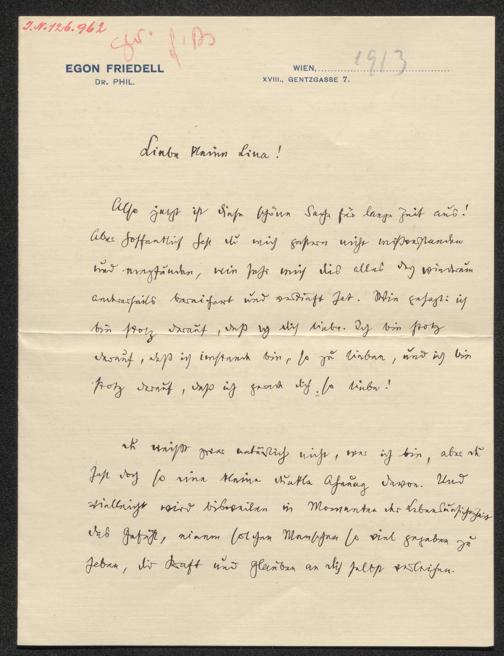 I.N. 126.962
EGON FRIEDELL
DR. PHIL.
WIEN, 1913
XVIII., GENTZGASSE 7.
Liebe kleine Lina!
Also jetzt ist diese schöne Sache für lange Zeit aus!
Aber hoffentlich hast du mich gestern nicht mißverstanden
und empfunden, wie sehr mich dies alles doch wiederum
andrerseits bereichert und vertieft hat. Wie gesagt: ich
bin stolz darauf, daß ich dich liebe. Ich bin stolz
darauf, daß ich imstande bin, so zu lieben, und ich bin
stolz darauf, daß ich gerade dich so liebe!
Du weißt zwar natürlich nicht, wer ich bin, aber du
hast doch so eine kleine dunkle Ahnung davon. Und
vielleicht wird bisweilen in Momenten der Lebensunsicherheit
das Gefühl, einem solchen Menschen so viel gegeben zu
haben, dir Kraft und Glauben an dich selbst verleihen.